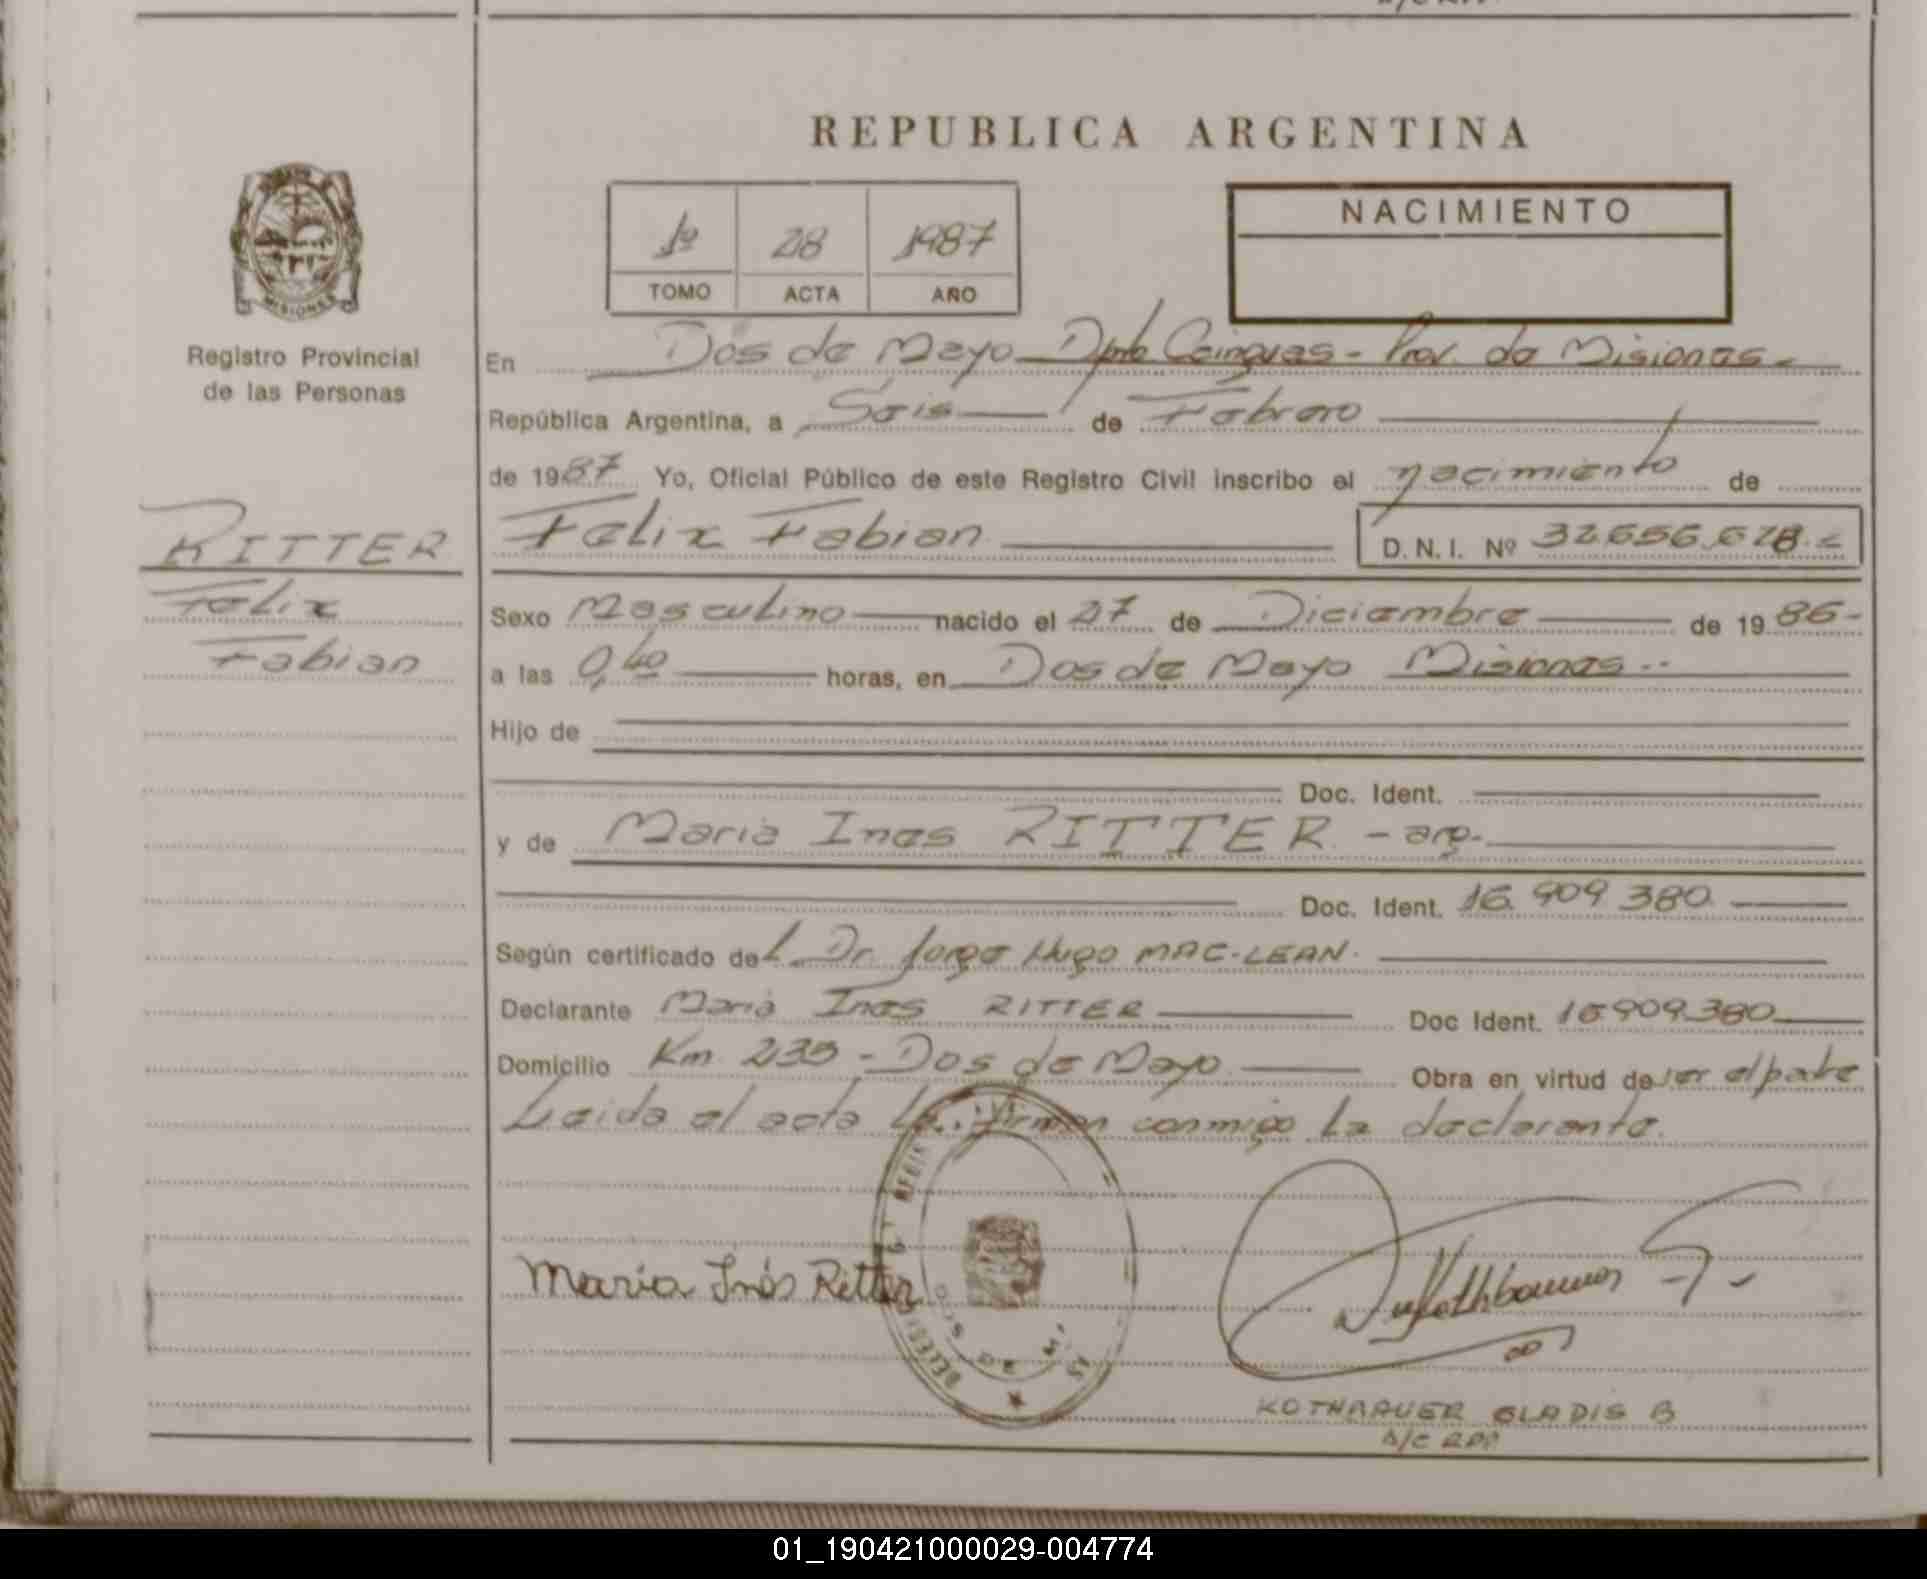 REPUBLICA ARGENTINA
1º 28 1987
TOMO ACTA AÑO
NACIMIENTO
MISIONES
Registro Provincial
de las Personas
En Dos de Mayo Dpto Cainguas - Prov. de Misiones.-
República Argentina, a Seis de Febrero
de 1987 Yo, Oficial Público de este Registro Civil inscribo el nacimiento de
RITTER
Felix Fabian D.N.I. Nº 32.656.628.-
Felix
Fabian
Sexo Masculino nacido el 27 de Diciembre de 1986-
a las 0,40 horas, en Dos de Mayo Misiones..
Hijo de
Doc. Ident.
y de Maria Ines RITTER - arg.
Doc. Ident. 16.909.380
Según certificado del Dr. Jorge Hugo MAC-LEAN.
Declarante Maria Ines RITTER Doc Ident. 16.909.380
Domicilio Km. 235 - Dos de Mayo Obra en virtud de ser el pate
Leida el acta la firman conmigo la declarante.
Maria Inés Ritter
KOTHBAUER GLADIS B
A/C RPP
01_190421000029-004774